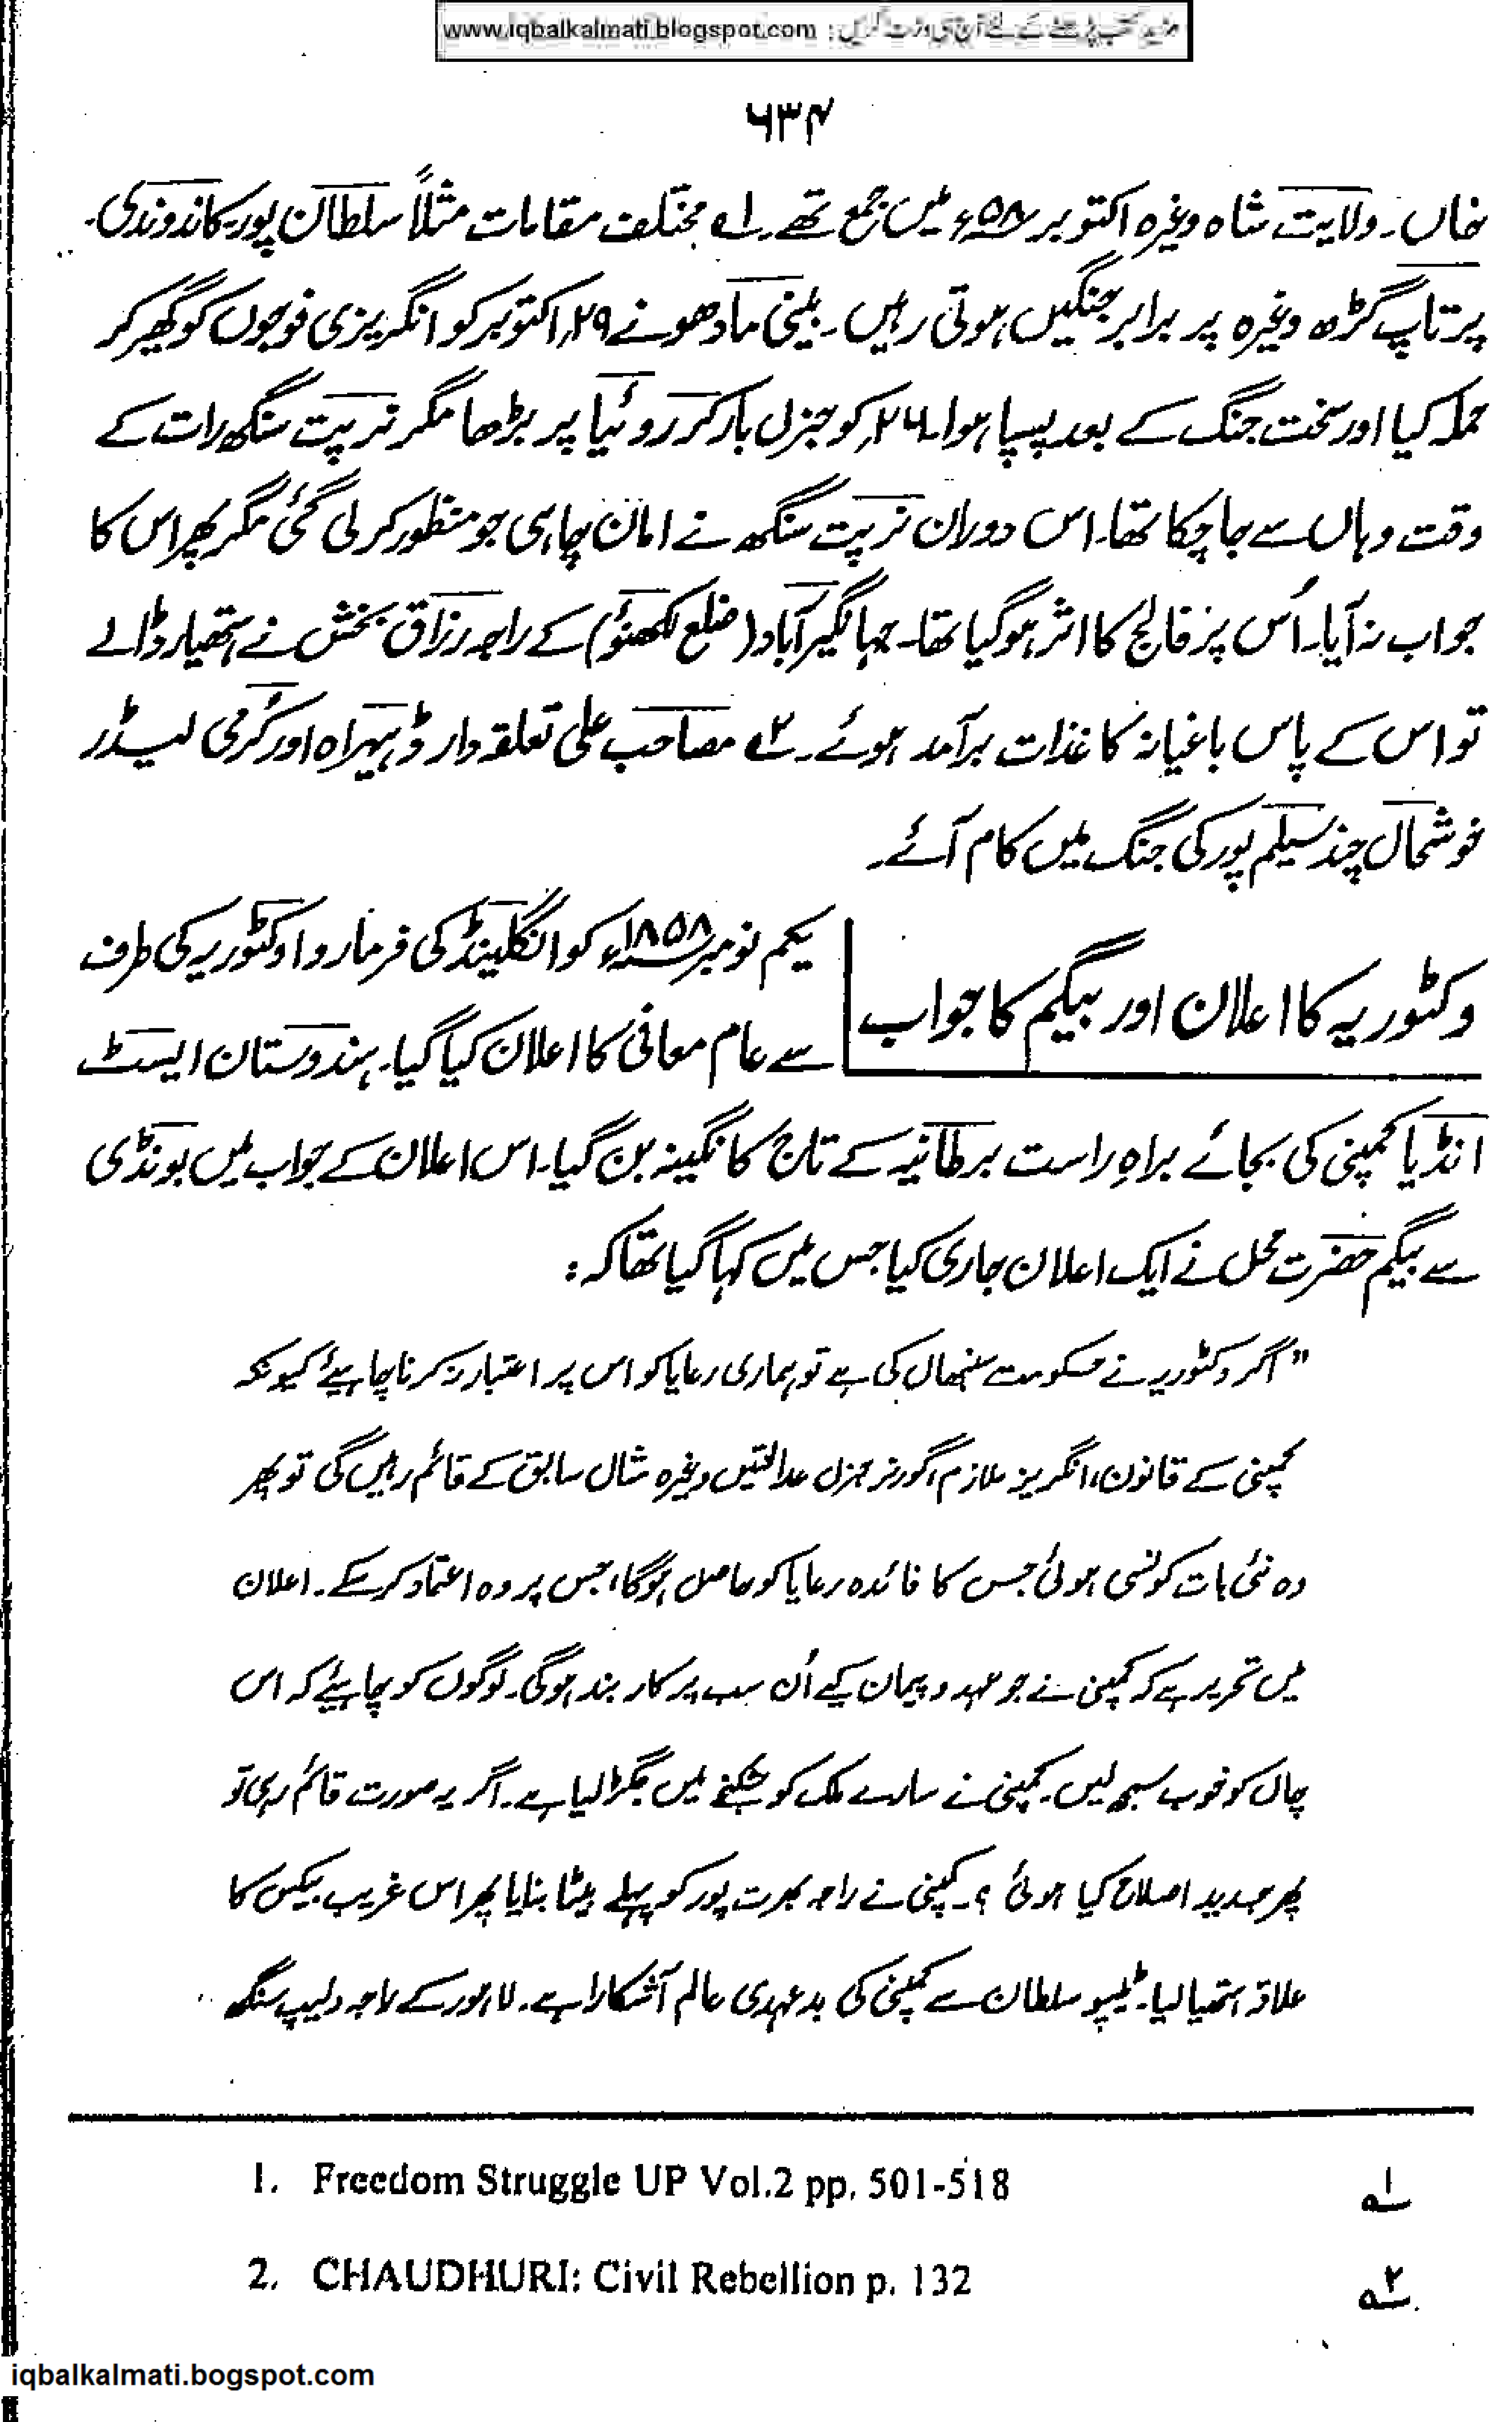 مزید کتب پڑھنے کے لئے آج ہی وزٹ کریں : www.iqbalkalmati.blogspot.com
۶۳۴
خاں۔ ولایت شاہ وغیرہ اکتوبر ۵۸ء میں جمع تھے۔ ۱؎ مختلف مقامات مثلاً سلطان پور، کاندوندی۔
پرتاپ گڑھ وغیرہ پر برابر جنگیں ہوتی رہیں۔ بینی مادھو نے ۲۹؍ اکتوبر کو انگریزی فوجوں کو گھیر کر
حملہ کیا اور سخت جنگ کے بعد پسپا ہوا۔ ۲۶؍ کو جنرل بارکر روئیا پر بڑھا مگر نرپت سنگھ رات کے
وقت وہاں سے جا چکا تھا۔ اس دوران نرپت سنگھ نے امان چاہی جو منظور کر لی گئی مگر پھر اس کا
جواب نہ آیا۔ اُس پر فالج کا اثر ہو گیا تھا۔ جہانگیر آباد (ضلع لکھنؤ) کے راجہ رزاق بخش نے ہتھیار ڈالے
تو اس کے پاس باغیانہ کاغذات برآمد ہوئے۔ ۲؎ مصاحب علی تعلقہ دار ڈہیراہ اور کُرمی لیڈر
خوشحال چند سیلم پور کی جنگ میں کام آئے۔
وکٹوریہ کا اعلان اور بیگم کا جواب
یکم نومبر ۱۸۵۸ء کو انگلینڈ کی فرماروا وکٹوریہ کی طرف
سے عام معافی کا اعلان کیا گیا۔ ہندوستان ایسٹ
انڈیا کمپنی کی بجائے براہِ راست برطانیہ کے تاج کا نگینہ بن گیا۔ اس اعلان کے جواب میں بونڈی
سے بیگم حضرت محل نے ایک اعلان جاری کیا جس میں کہا گیا تھا کہ :
"اگر وکٹوریہ نے حکومت سنبھال لی ہے تو ہماری رعایا کو اس پر اعتبار نہ کرنا چاہیئے کیونکہ
کمپنی کے قانون، انگریز ملازم، گورنر جنرل عدالتیں وغیرہ مثال سابق کے قائم رہیں گی تو پھر
وہ نئی بات کونسی ہوئی جس کا فائدہ رعایا کو حاصل ہوگا، جس پر وہ اعتماد کر سکے۔ اعلان
میں تحریر ہے کہ کمپنی نے جو عہد و پیمان کیے اُن سب پر کاربند ہوگی۔ لوگوں کو چاہیئے کہ اس
چال کو خوب سمجھ لیں۔ کمپنی نے سارے ملک کو شکنجے میں جکڑ لیا ہے۔ اگر یہ صورت قائم رہی تو
پھر جدید اصلاح کیا ہوئی ؟۔ کمپنی نے راجہ بھرت پور کو پہلے بیٹا بنایا پھر اس غریب بیکس کا
علاقہ ہتھیا لیا۔ ٹیپو سلطان سے کمپنی کی بدعہدی عالم آشکارا ہے۔ لاہور کے راجہ دلیپ سنگھ
۱؎ 1. Freedom Struggle UP Vol.2 pp. 501-518
۲؎ 2. CHAUDHURI: Civil Rebellion p. 132
iqbalkalmati.bogspot.com